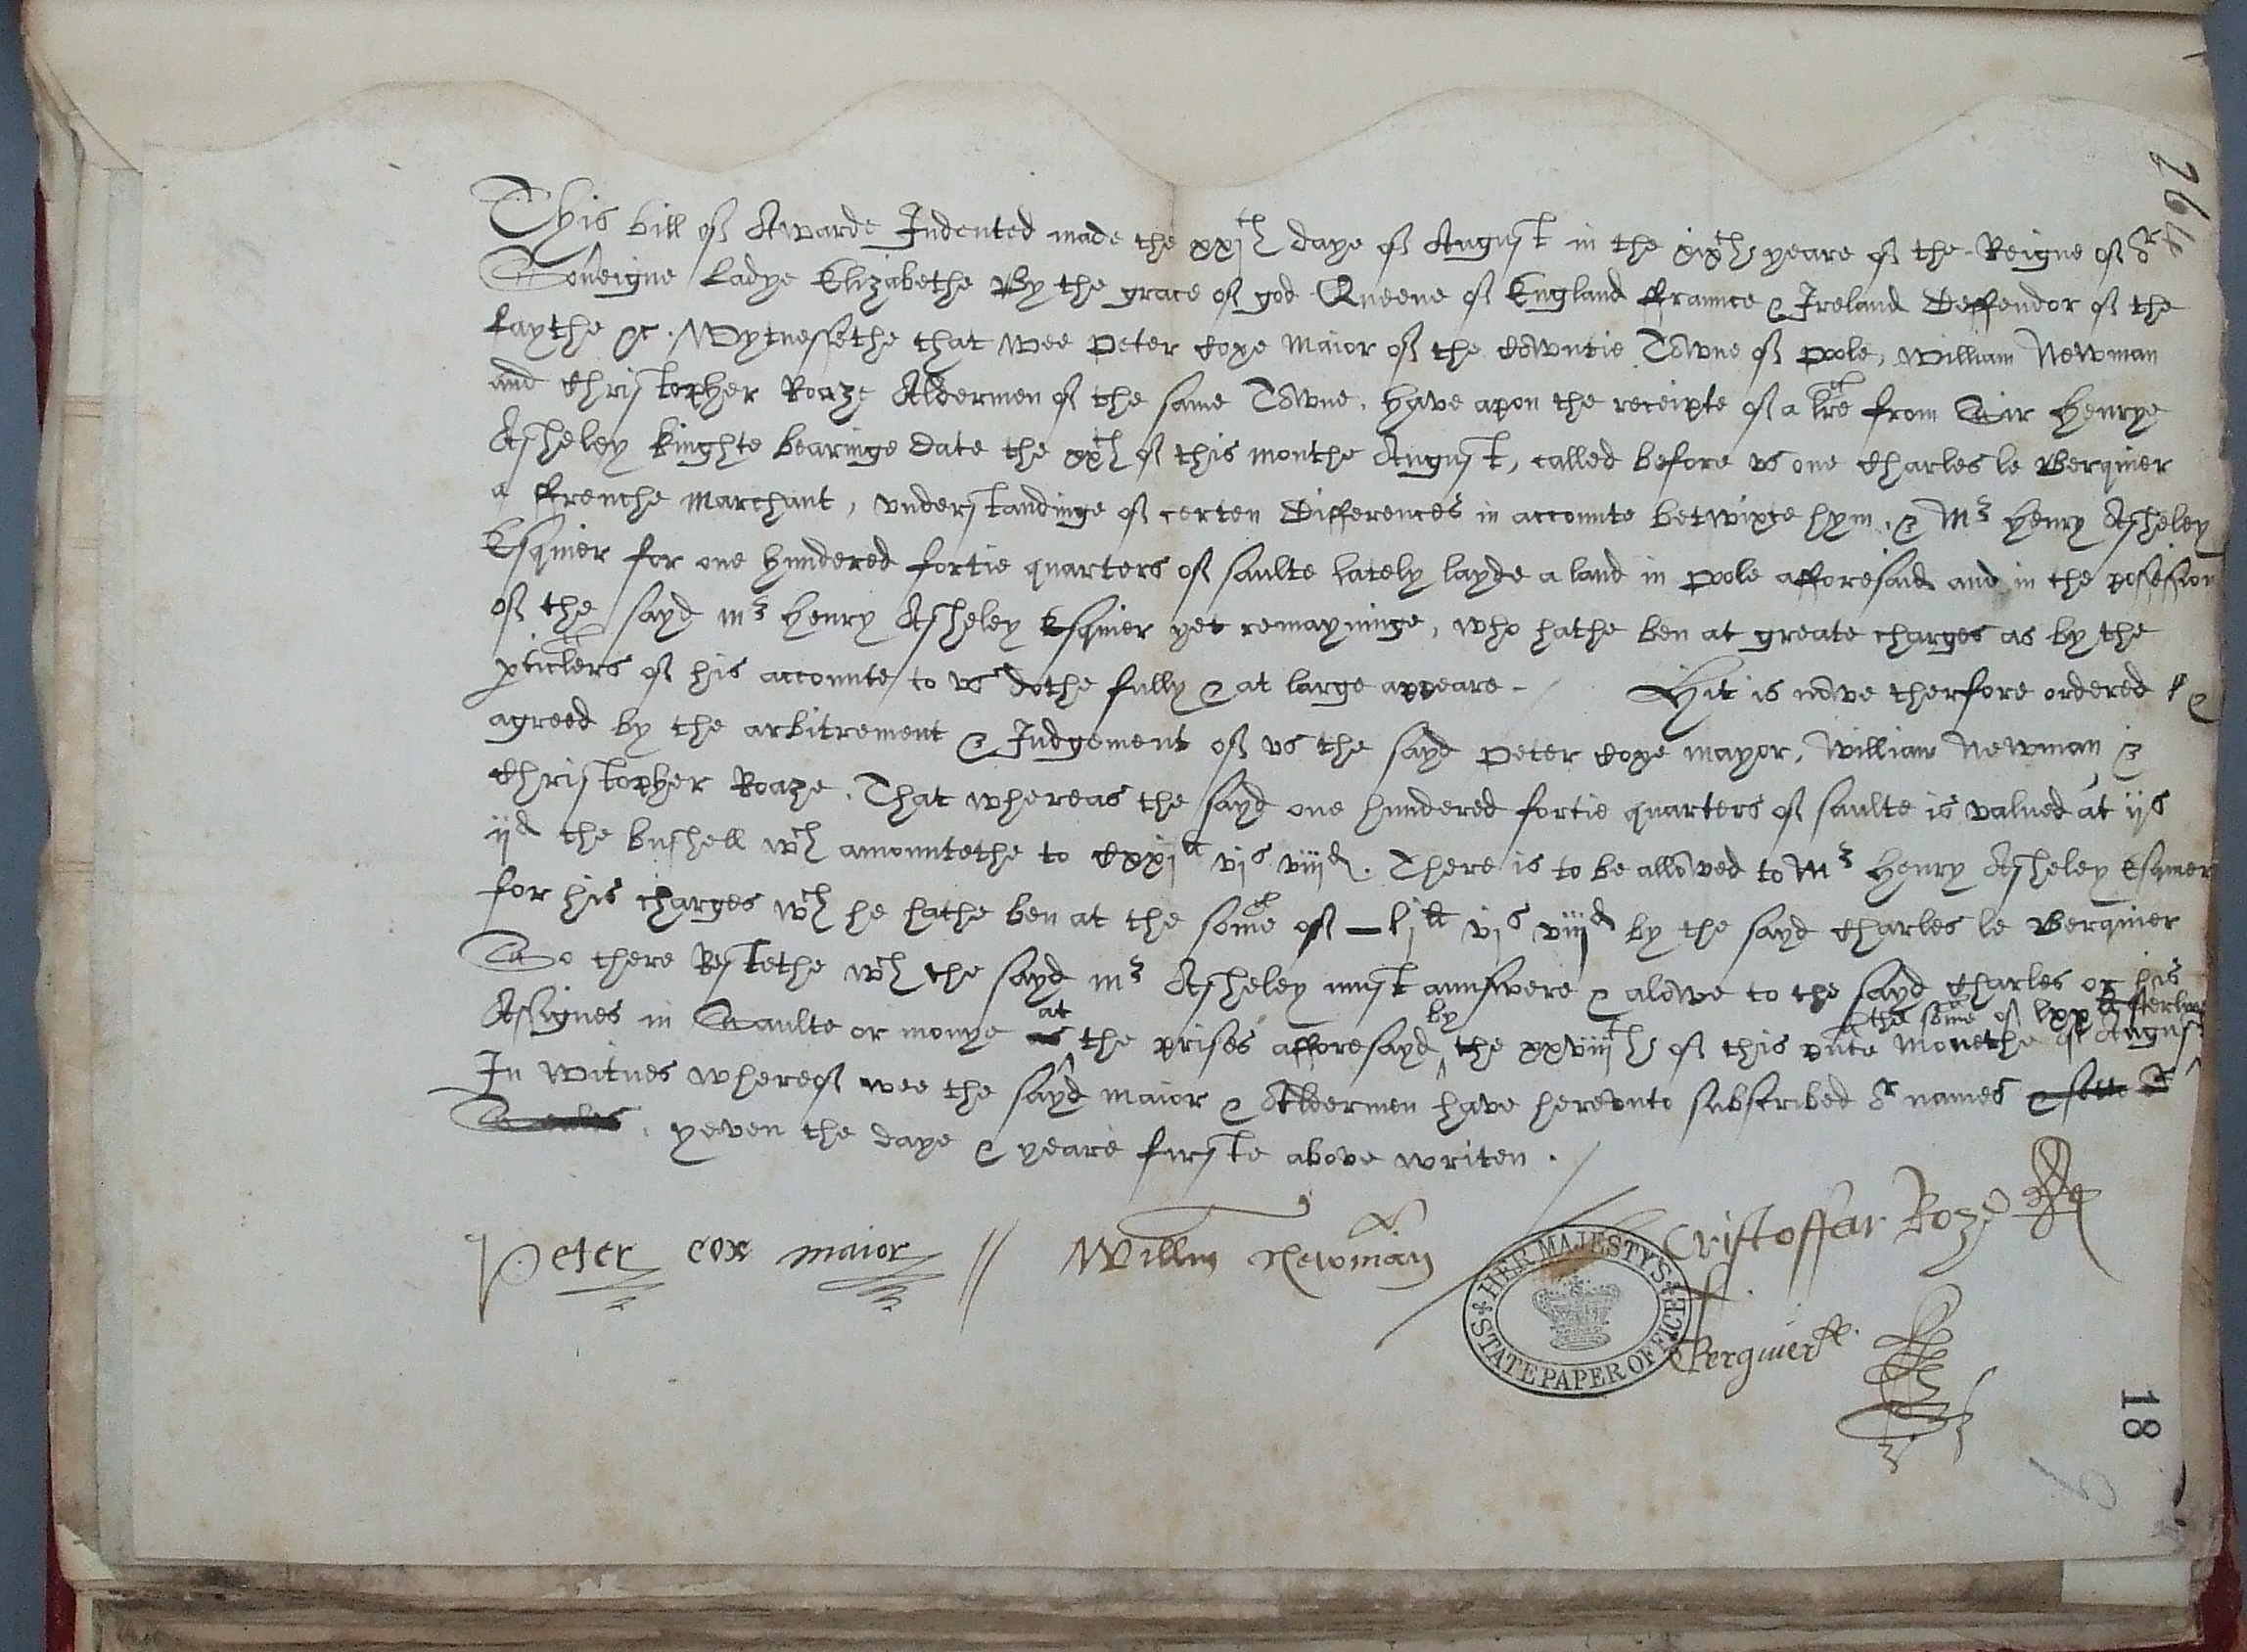 264
This bill of Awarde Indented made the xxjth daye of August in the xixth yeare of the Reigne of or
Soveigne Ladye Elizabethe By the grace of god Queene of England ffraunce & Ireland Deffendor of the
faythe &c. Wytnessethe that wee Peter Coxe Maior of the Cowntie Towne of Poole, William Newman
and Christopher Roaze Aldermen of the same Towne, have apon the receipte of a lre from Sir Henrye
Asheley kinghte bearinge date the xxth of this monthe August, called before us one Charles le Berquier
a ffrenche Marchant, understandinge of certen Differences in accounte betwixte hym, & Mr Henry Asheley
Esquier for one hundered fortie quarters of saulte lately layde a land in Pole afforesaid and in the possession
of the sayd mr Henry Asheley Esquier yet remayninge, who hathe ben at greate charges as by the
pticlers of his accounte to us dothe fully & at large appeare - / Hit is nowe therfore ordered &
agreed by the arbitrement & Judgement of us the sayd Peter Coxe mayor, William Newman &
Christopher Roaze. That whereas the sayd one hundered fortie quarters of saulte is valued at ijs
ijd the bushell wch amountethe to Cxxjli vjs viijd. There is to be allowed to Mr Henry Asheley Esquier
for his charges wch he hathe ben at the some of — ljli vjs viijd by the sayd Charles le Berquier
So there Restethe wch the sayd mr Asheley must aunswere & alowe to the sayd Charles or his
the some of lxxli sterlinge
Assignes in Saulte or monye at the prises afforesayd by the xxviijth of this pnte Monethe of August
In witnes whereof wee the sayd maior & Aldermen have hereunto subscribed or names & sette or
Seales. yeven the daye & yeare firste above writen.
Peter cox maior // Willm Newman Cristoffar Roze
Berquier
HER MAJESTY'S STATE PAPER OFFICE
18